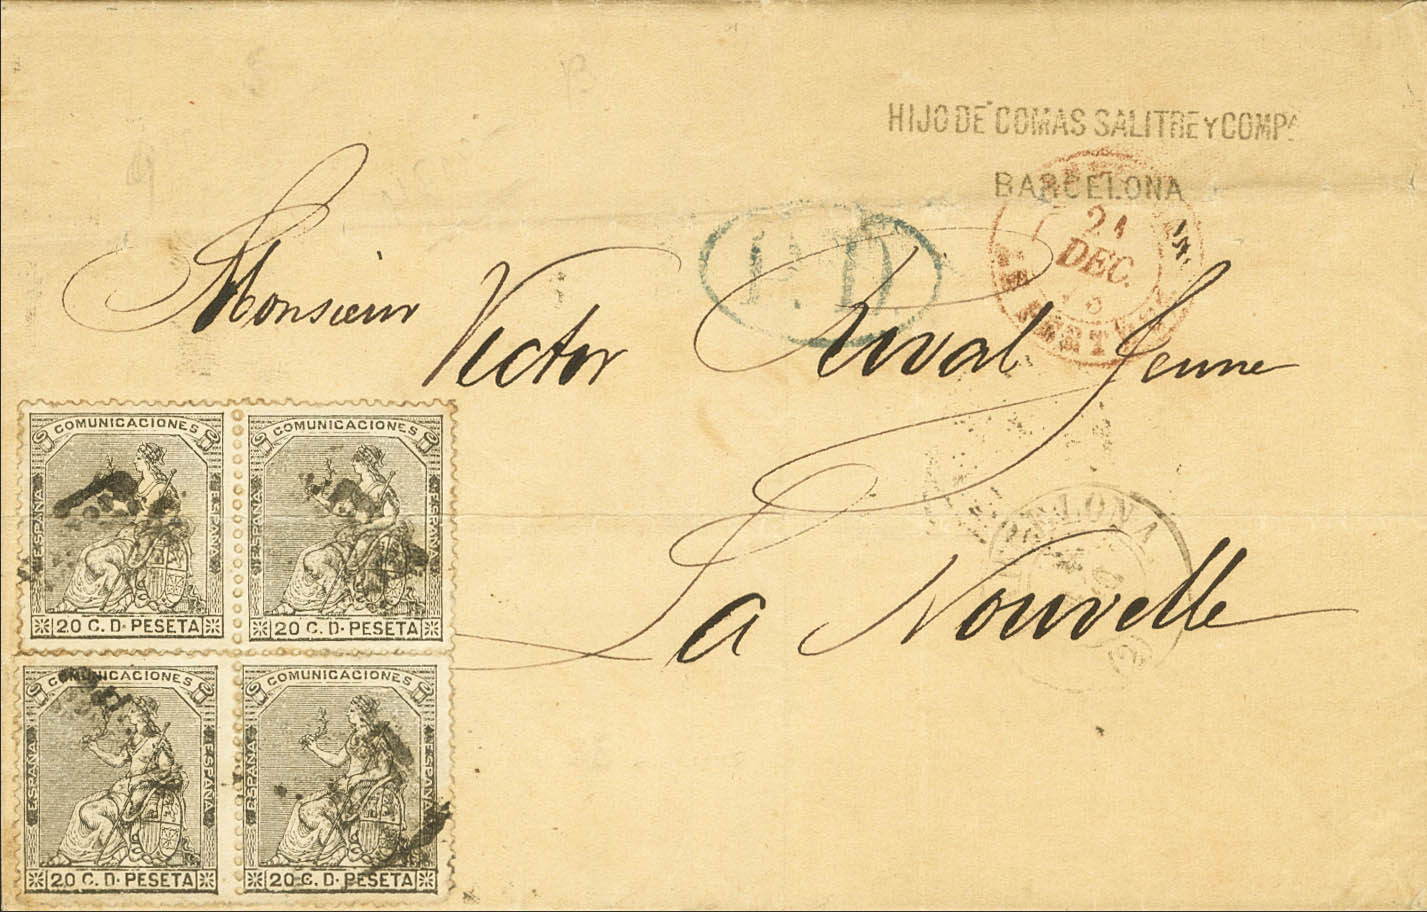 HIJO DE COMAS SALITRE Y COMPA
BARCELONA
21
DEC.
P.D
Monsieur Victor Ruval Jeune
La Nouvelle
COMUNICACIONES
ESPAÑA
ESPAÑA
20 C. D. PESETA
COMUNICACIONES
ESPAÑA
ESPAÑA
20 C. D. PESETA
COMUNICACIONES
ESPAÑA
ESPAÑA
20 C. D. PESETA
COMUNICACIONES
ESPAÑA
ESPAÑA
20 C. D. PESETA